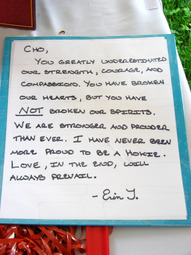 CHO,
YOU GREATLY UNDERESTIMATED
OUR STRENGTH, COURAGE, AND
COMPASSION. YOU HAVE BROKEN
OUR HEARTS, BUT YOU HAVE
NOT BROKEN OUR SPIRITS.
WE ARE STRONGER AND PROUDER
THAN EVER. I HAVE NEVER BEEN
MORE PROUD TO BE A HOKIE.
LOVE, IN THE END, WILL
ALWAYS PREVAIL.
- Erin J.